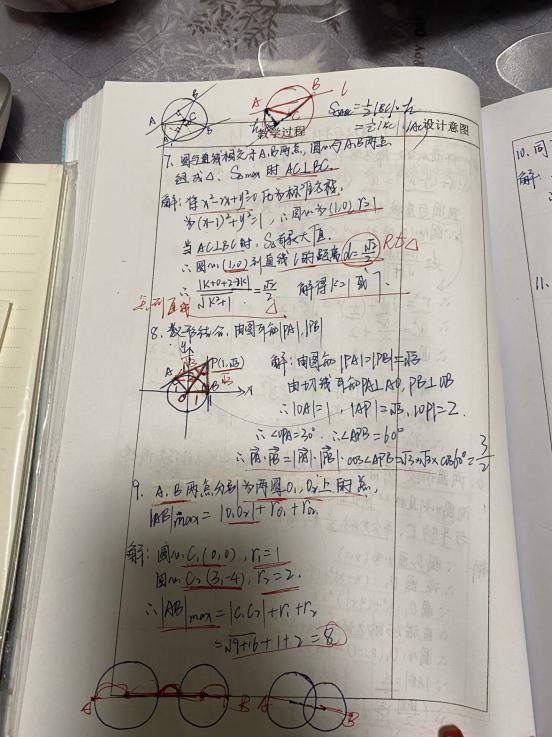 A B C B
A B l
S△ABC=½|BC|·h
=½|BC|·|AC|
教学过程 设计意图
7. 圆与直线相交于A,B两点,圆心与A,B两点
组成△. S△max时AC⊥BC.
解:将x²-2x+y²=0化为标准方程,
为(x-1)²+y²=1,∴圆心为(1,0) r=1
当AC⊥BC时,S△有最大值.
∴圆心(1,0)到直线l的距离d=√2/2 Rt△
∴|K+0+2-3K|/√K²+1=√2/2 解得K=1或7.
8. 数形结合,由图可知|PA|,|PB|
P(1,√3)
解:由图知|PA|=|PB|=√3
由切线可知PA⊥AO, PB⊥OB
∴|OA|=1,|AP|=√3,|OP|=2.
∴∠OPA=30° ∴∠APB=60°
∴PA·PB=|PA|·|PB|·cos∠APB=√3×√3×cos60°=3/2
9. A,B两点分别为两圆O₁,O₂上的点,
|AB|max=|O₁O₂|+r₁+r₂
解:圆心C₁(0,0), r₁=1
圆心C₂(3,-4), r₂=2.
∴|AB|max=|C₁C₂|+r₁+r₂
=√9+16+1+2=8
A B A B
10.
解:
11.